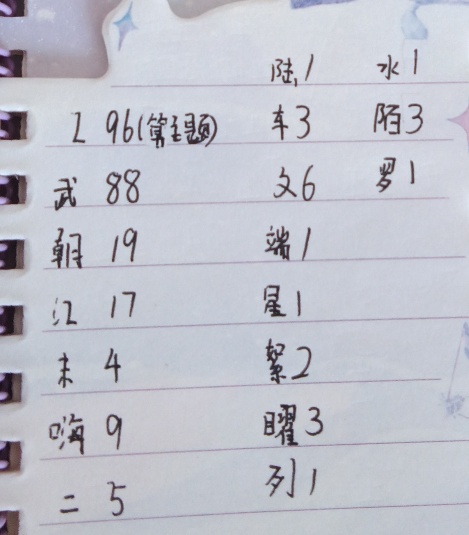 陆1 水1
工 96(算主题) 车3 陌3
武 88 文6 罗1
朝 19 端1
江 17 星1
未 4 絮2
嗨 9 曜3
二 5 列1